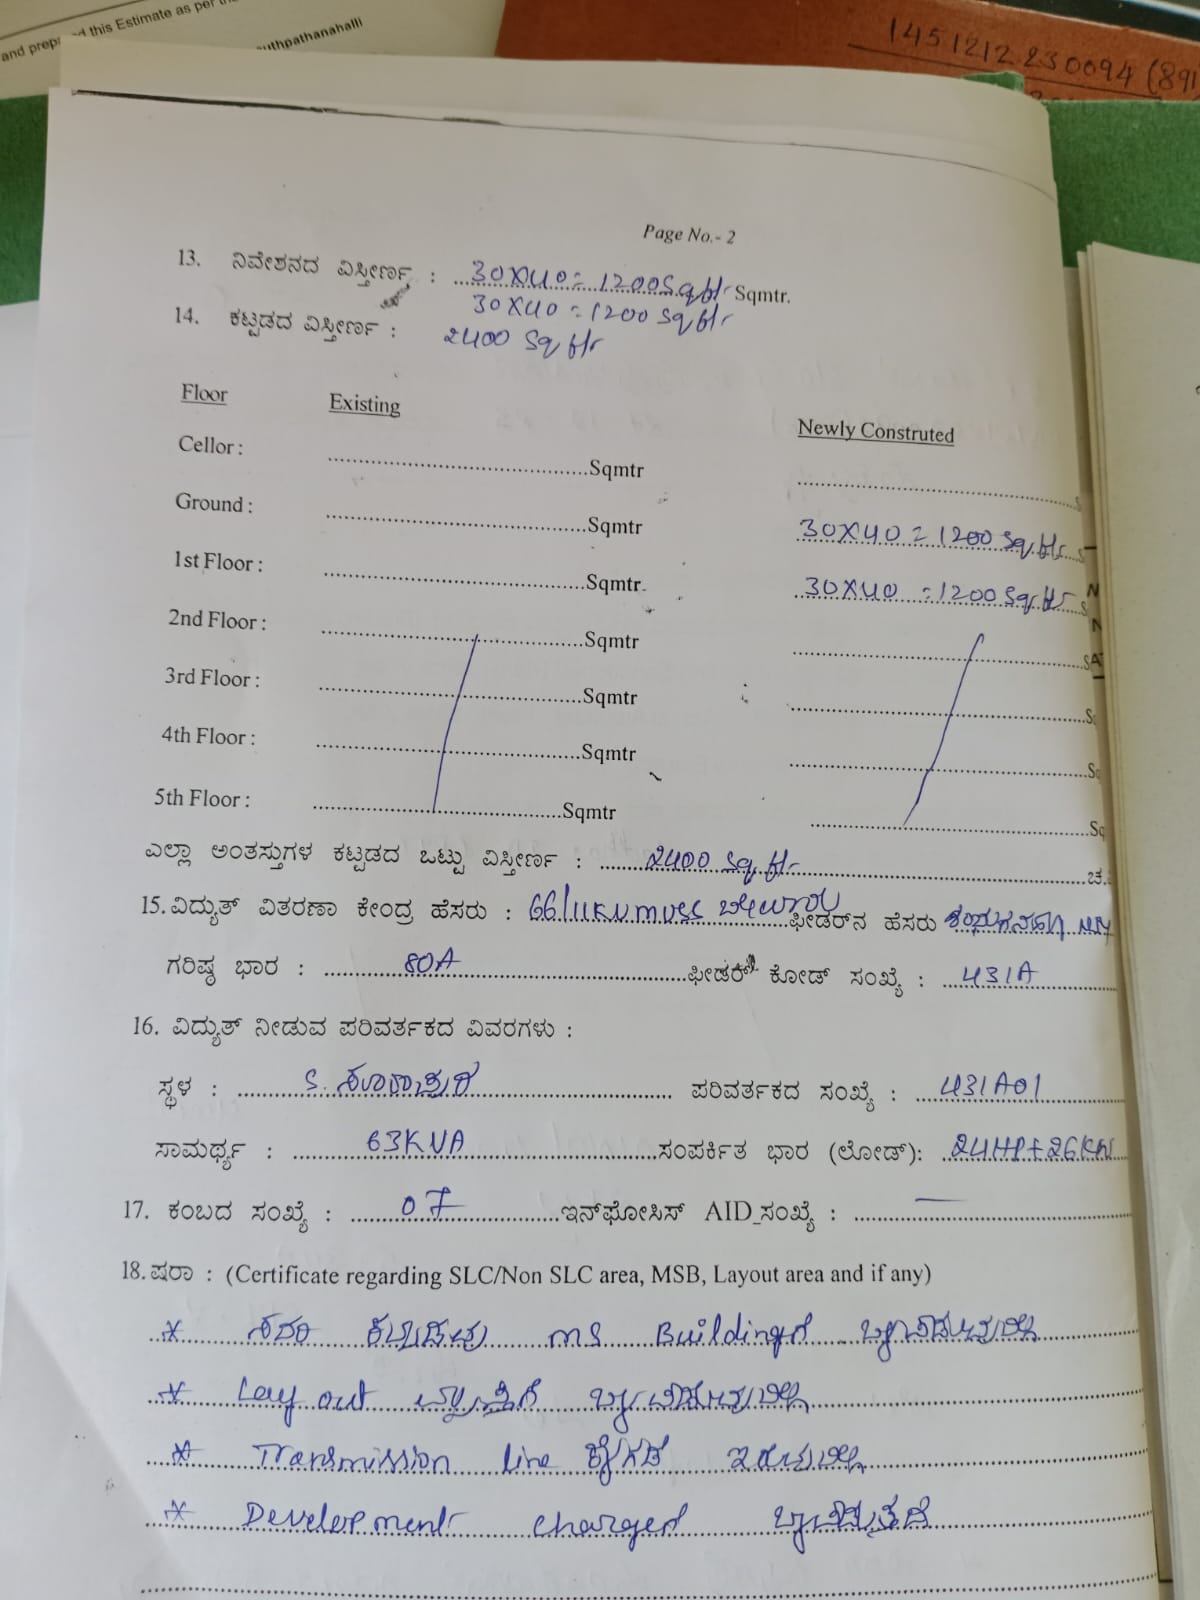 and prep this Estimate as per
uthpathanahalli
1451212230094 (891
Page No.- 2
13. ನಿವೇಶನದ ವಿಸ್ತೀರ್ಣ : 30X40=1200Sqftr Sqmtr.
30X40=1200 Sqftr
14. ಕಟ್ಟಡದ ವಿಸ್ತೀರ್ಣ : 2400 Sqftr
Floor Existing Newly Construted
Cellor : Sqmtr
Ground : Sqmtr 30X40=1200 Sq.ftr
1st Floor : Sqmtr 30X40=1200Sqftr
2nd Floor : Sqmtr
3rd Floor : Sqmtr
4th Floor : Sqmtr
5th Floor : Sqmtr Sq
ಎಲ್ಲಾ ಅಂತಸ್ತುಗಳ ಕಟ್ಟಡದ ಒಟ್ಟು ವಿಸ್ತೀರ್ಣ : 2400 Sq.ftr ಚ.
15. ವಿದ್ಯುತ್ ವಿತರಣಾ ಕೇಂದ್ರ ಹೆಸರು : 66/11KVMUSS ಫೀಡರ್‌ನ ಹೆಸರು
ಗರಿಷ್ಠ ಭಾರ : 80A ಫೀಡರ್ ಕೋಡ್ ಸಂಖ್ಯೆ : 431A
16. ವಿದ್ಯುತ್ ನೀಡುವ ಪರಿವರ್ತಕದ ವಿವರಗಳು :
ಸ್ಥಳ : S. ಪರಿವರ್ತಕದ ಸಂಖ್ಯೆ : 431A01
ಸಾಮರ್ಥ್ಯ : 63KVA ಸಂಪರ್ಕಿತ ಭಾರ (ಲೋಡ್): 24HP+26KW
17. ಕಂಬದ ಸಂಖ್ಯೆ : 07 ಇನ್‌ಫೋಸಿಸ್ AID ಸಂಖ್ಯೆ : —
18. ಷರಾ : (Certificate regarding SLC/Non SLC area, MSB, Layout area and if any)
* ಸದರಿ ಕಟ್ಟಡವು MS Buildingಗೆ
* Lay out
* Transmission line ಕೆಳಗಡೆ ಇರುವುದಿಲ್ಲ
* Development chargeಗೆ